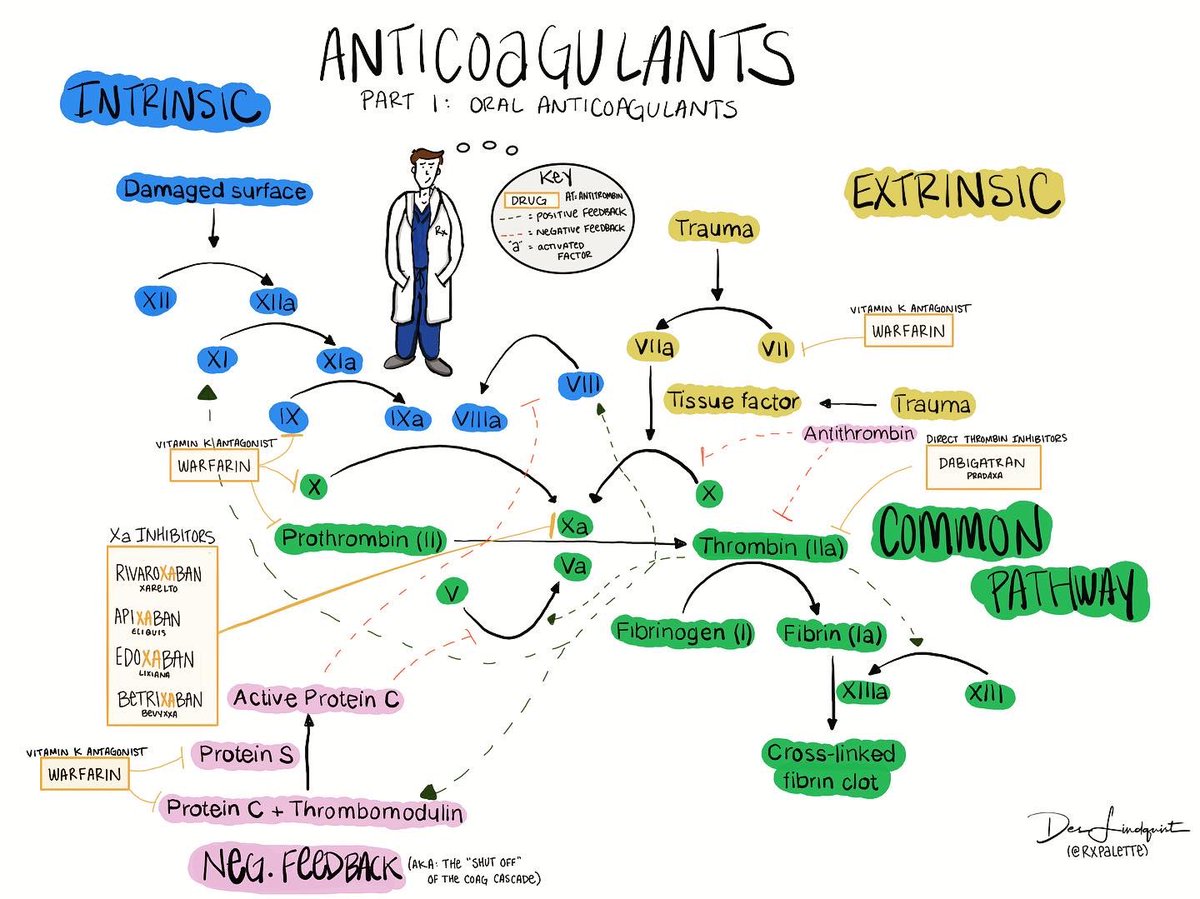 ANTICOAGULANTS
PART 1: ORAL ANTICOAGULANTS
INTRINSIC
Damaged surface
XII
XIIa
XI
XIa
IX
IXa
VIII
VIIIa
Rx
KEY
DRUG
AT: ANTITROMBIN
= POSITIVE FEEDBACK
= NEGATIVE FEEDBACK
"a" = ACTIVATED
FACTOR
EXTRINSIC
Trauma
VIIa
VII
VITAMIN K ANTAGONIST
WARFARIN
Tissue factor
Trauma
Antithrombin
DIRECT THROMBIN INHIBITORS
DABIGATRAN
PRADAXA
VITAMIN K ANTAGONIST
WARFARIN
X
X
Xa
Prothrombin (II)
Thrombin (IIa)
COMMON
PATHWAY
Va
V
Fibrinogen (I)
Fibrin (Ia)
XIIIa
XIII
Cross-linked
fibrin clot
Xa INHIBITORS
RIVAROXABAN
XARELTO
APIXABAN
ELIQUIS
EDOXABAN
LIXIANA
BETRIXABAN
BEVYXXA
Active Protein C
VITAMIN K ANTAGONIST
WARFARIN
Protein S
Protein C + Thrombomodulin
NEG. FEEDBACK
(AKA: THE "SHUT OFF"
OF THE COAG CASCADE)
Des Lindquist
(@RXPALETTE)